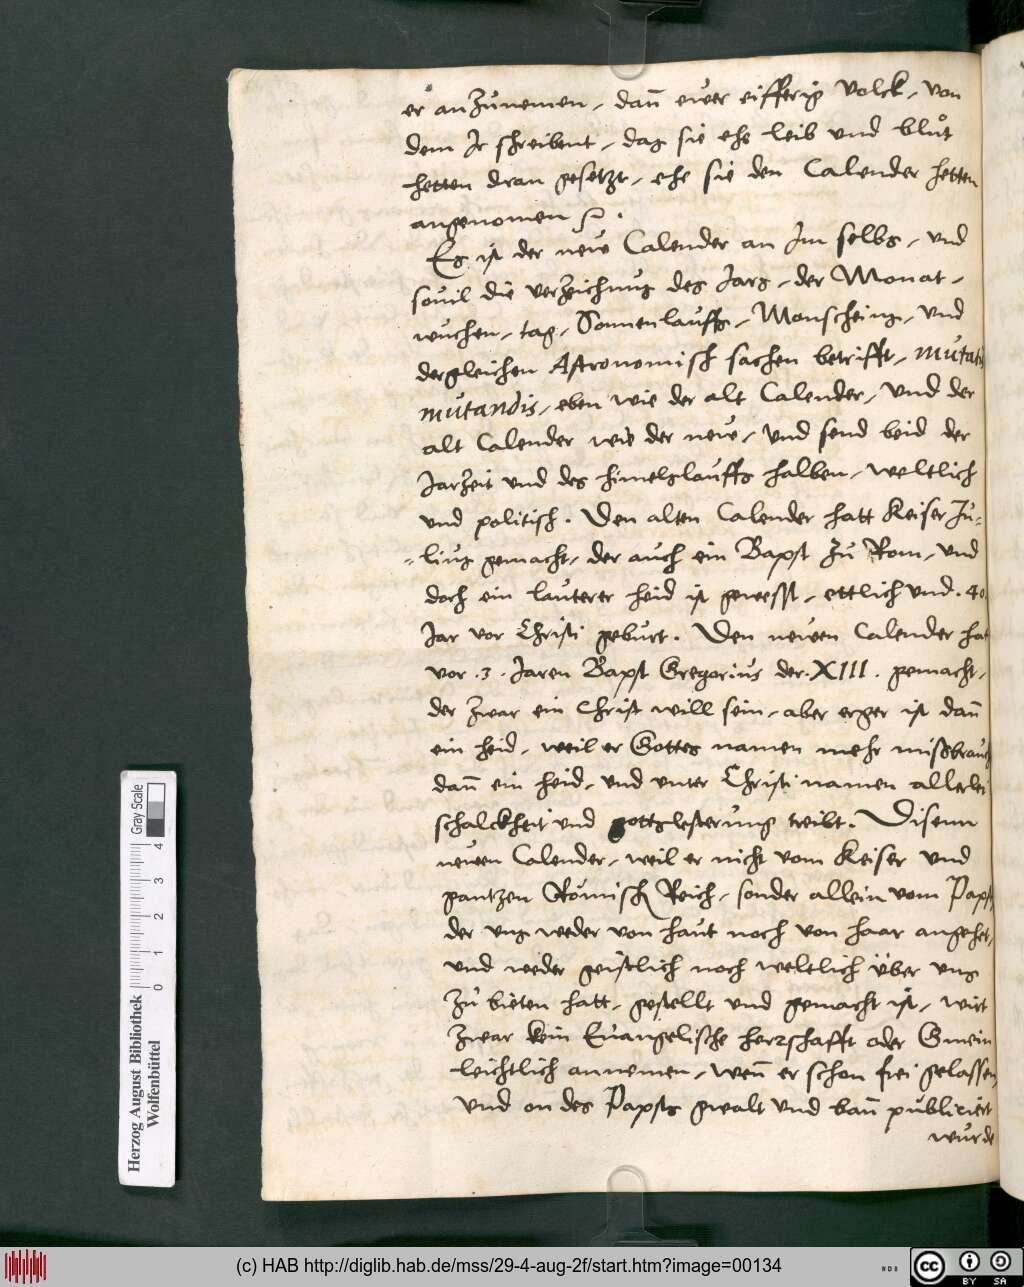 er anzunemen, dann ewer eifferig Volck, von
dem Ir schreibent, das sie ehe leib und blůt
hetten dran gesetzt, ehe sie den Calender hetten
angenomen
Es ist der new Calender an Im selbs, und
souil die verzeichnus des Jars, der Monat,
wuchen, tag, Sonnenlauffs, Monscheins, und
dergleichen Astronomisch sachen betrifft, mutatis
mutandis, eben wie der alt Calender, und der
alt Calender wie der new, und send beid der
Jarzeit und des himelslauffs halben, weltlich
und politisch. Den alten Calender hatt Keiser Ju-
-lius gemacht, der auch ein Bapst zů Rom, und
doch ein lauterer heid ist gewesst, ettlich und .40.
Jar vor Christi geburt. Den newen Calender hat
vor .3. Jaren Bapst Gregorius der .XIII. gemacht,
der zwar ein Christ will sein, aber erger ist dann
ein heid, weil er Gottes namen mehr mißbraucht
dann ein heid, und unter Christi namen allerlei
schalckheit und gottslesterung treibt. Disenn
newen Calender, weil er nicht vom Keiser und
gantzen Römisch Reich, sonder allein vom Papst
der uns weder von haut noch von haar angehet,
und weder geistlich noch weltlich über uns
zů bieten hatt, gestellt und gemacht ist, wirt
zwar kein Euangelische herrschafft oder Gmein
leichtlich annemen, wenn er schon frei gelassen,
und on des Papsts gwalt und bann publiciert
wurde
Gray Scale
0 1 2 3 4
Herzog August Bibliothek
Wolfenbüttel
(c) HAB http://diglib.hab.de/mss/29-4-aug-2f/start.htm?image=00134
cc BY SA